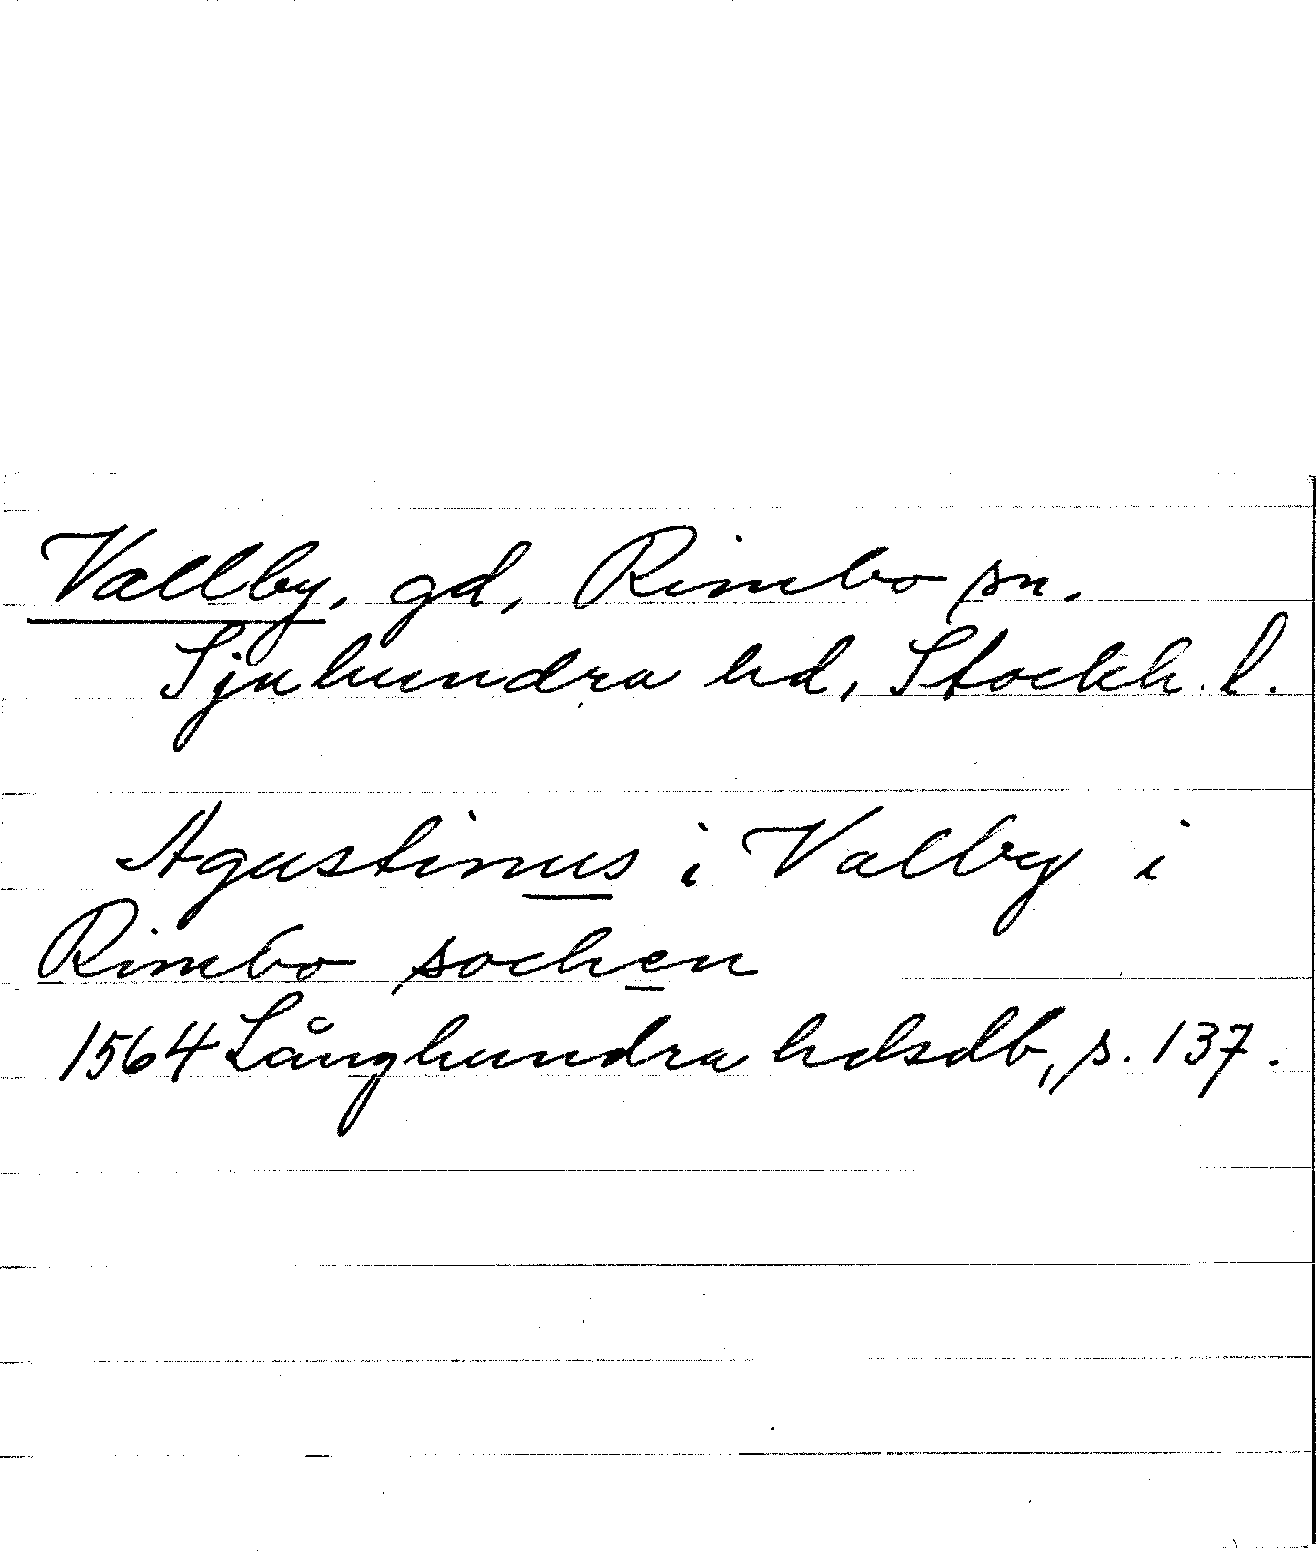 Vallby, gd, Rimbo sn.
Sjuhundra hd, Stockh. l.
Agustinus i Valby i
Rimbo sochen
1564 Långhundra hdsdb, s. 137.